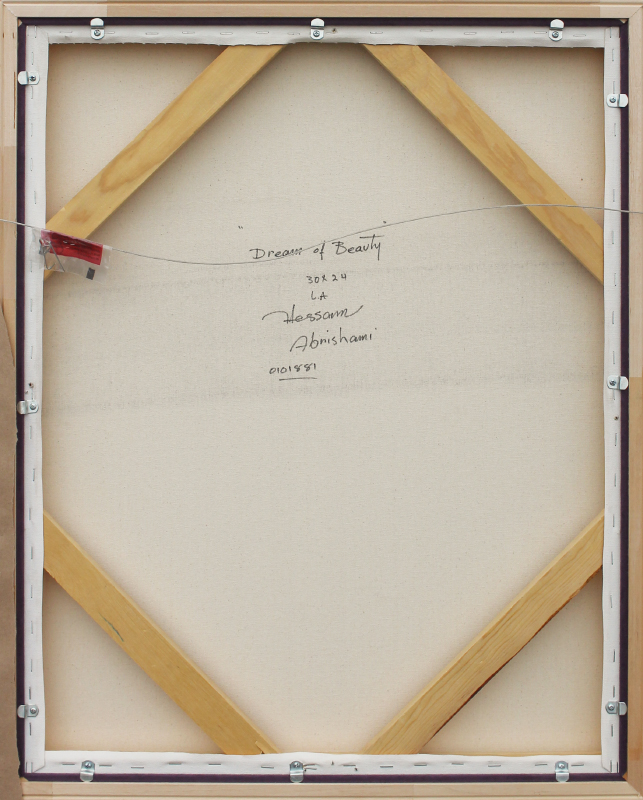 "Dream of Beauty"
30x24
LA
Hessam
Abrishami
0101881